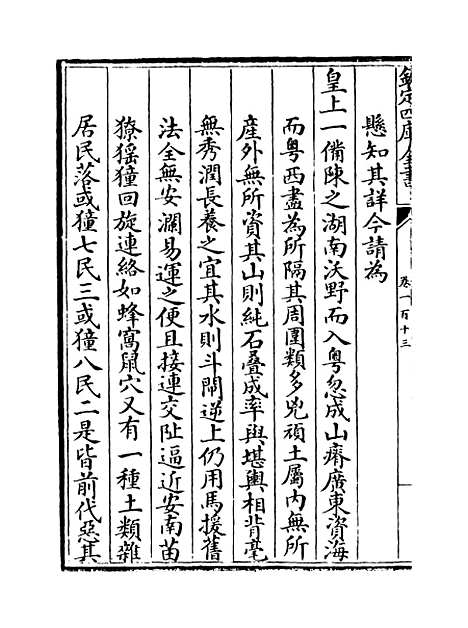 欽定四庫全書
卷一百十三
懸知其詳今請為
皇上一備陳之湖南沃野而入粵忽成山瘠廣東資海
而粵西盡為所隔其周圍類多兇頑土屬內無所
產外無所資其山則純石叠成率與堪輿相背毫
無秀潤長養之宜其水則斗閘逆上仍用馬援舊
法全無安瀾易運之便且接連交阯逼近安南苗
獠猺獞回旋連絡如蜂窩鼠穴又有一種土類雜
居民落或獞七民三或獞八民二是皆前代惡其